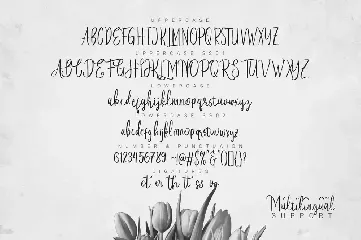 UPPERCASE
ABCDEFGHIJKLMNOPQRSTUVWXYZ
UPPERCASE SS01
ABCDEFGHIJKLMNOPQRSTUVWXYZ
LOWERCASE
abcdefghijklmnopqrstuvwxyz
LOWERCASE SS02
abcdefghijklmnopqrstuvwxyz
NUMBER & PUNCTUATION
LIGATURES
Multilingual
SUPPORT